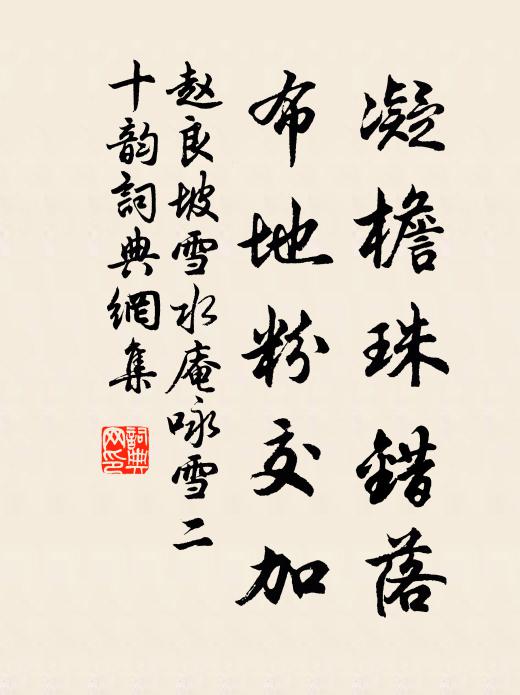 凝檐珠錯落
布地粉交加
赵良坡雪水庵咏雪二
十韵詞典網集
詞典網印